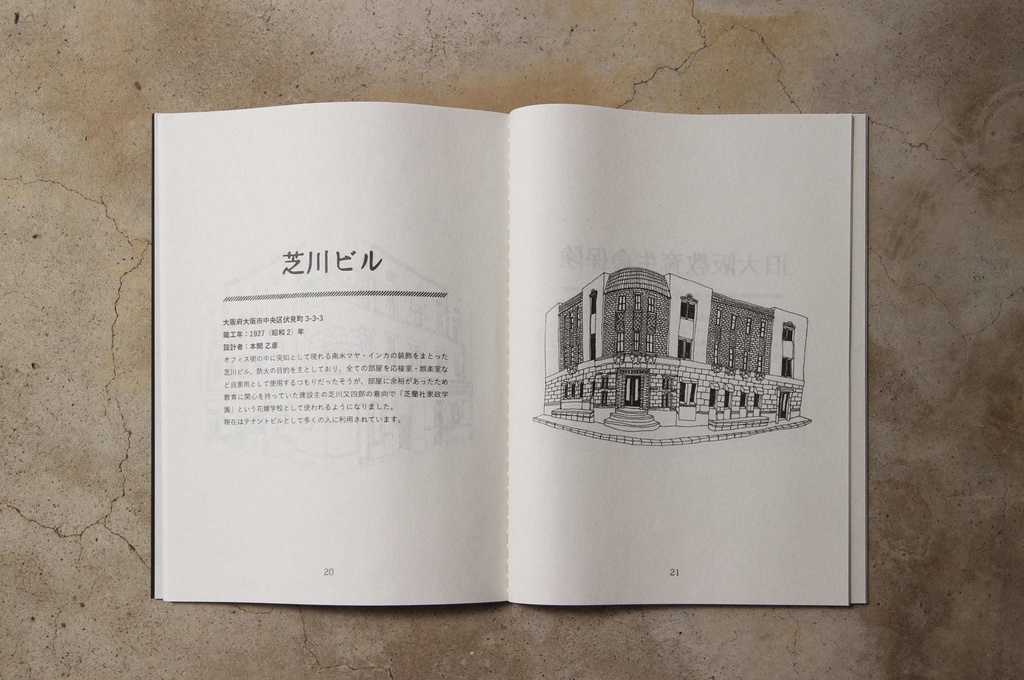 芝川ビル
大阪府大阪市中央区伏見町 3-3-3
竣工年：1927（昭和 2）年
設計者：本間 乙彦
オフィス街の中に突如として現れる南米マヤ・インカの装飾をまとった
芝川ビル。防火の目的を主としており、全ての部屋を応接室・娯楽室な
ど自家用として使用するつもりだったそうが、部屋に余裕があったため
教育に関心を持っていた建設主の芝川又四郎の意向で「芝蘭社家政学
園」という花嫁学校として使われるようになりました。
現在はテナントビルとして多くの人に利用されています。
20
旧大阪教育生命保険
21